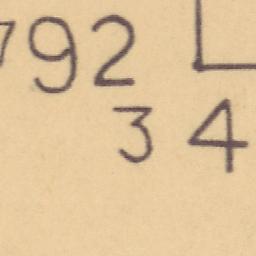 792
34